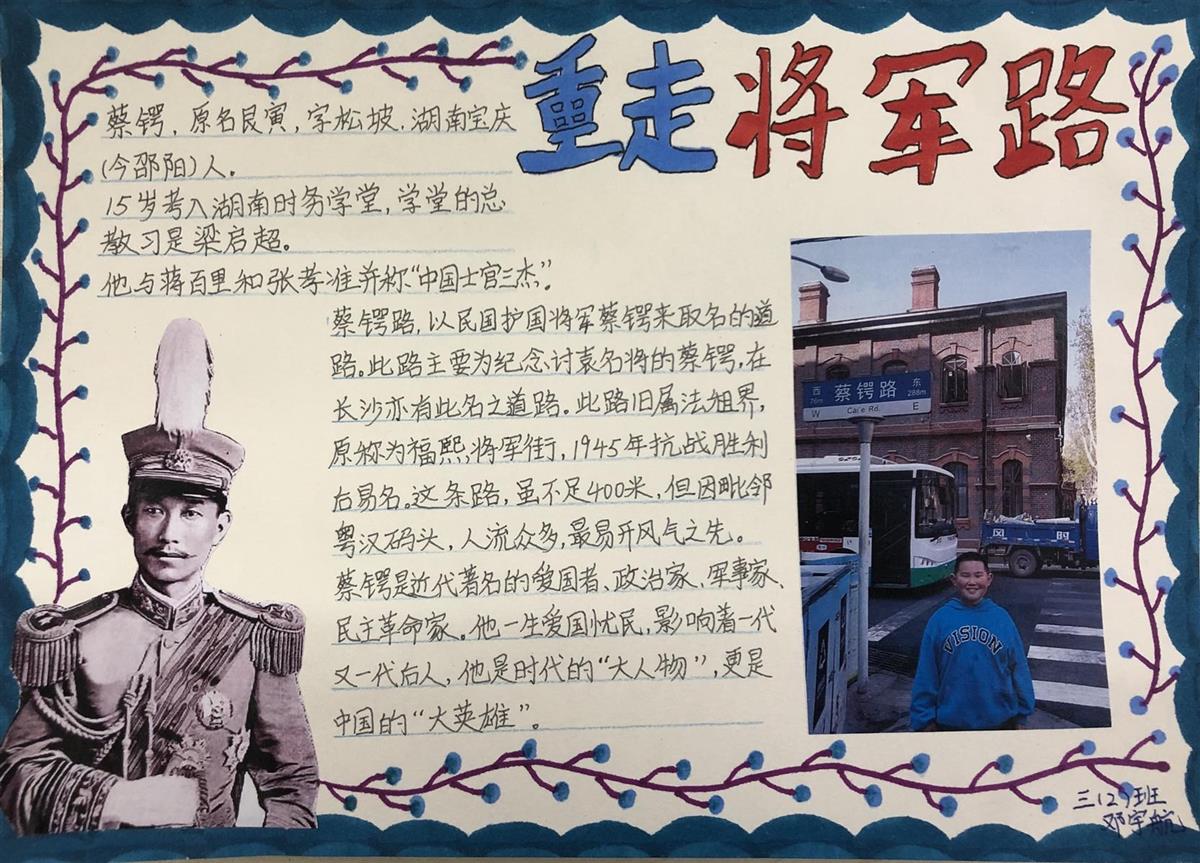 重走将军路
蔡锷，原名艮寅，字松坡，湖南宝庆
(今邵阳)人。
15岁考入湖南时务学堂，学堂的总
教习是梁启超。
他与蒋百里和张孝准并称“中国士官三杰”。
蔡锷路，以民国护国将军蔡锷来取名的道
路。此路主要为纪念讨袁名将的蔡锷，在
长沙亦有此名之道路。此路旧属法租界，
原称为福熙将军街，1945年抗战胜利
后易名。这条路，虽不足400米，但因毗邻
粤汉码头，人流众多，最易开风气之先。
蔡锷是近代著名的爱国者、政治家、军事家、
民主革命家。他一生爱国忧民，影响着一代
又一代后人，他是时代的“大人物”，更是
中国的“大英雄”。
西 蔡锷路 东
76m 288m
W Cai e Rd. E
VISION
三(2)班
邓宇航